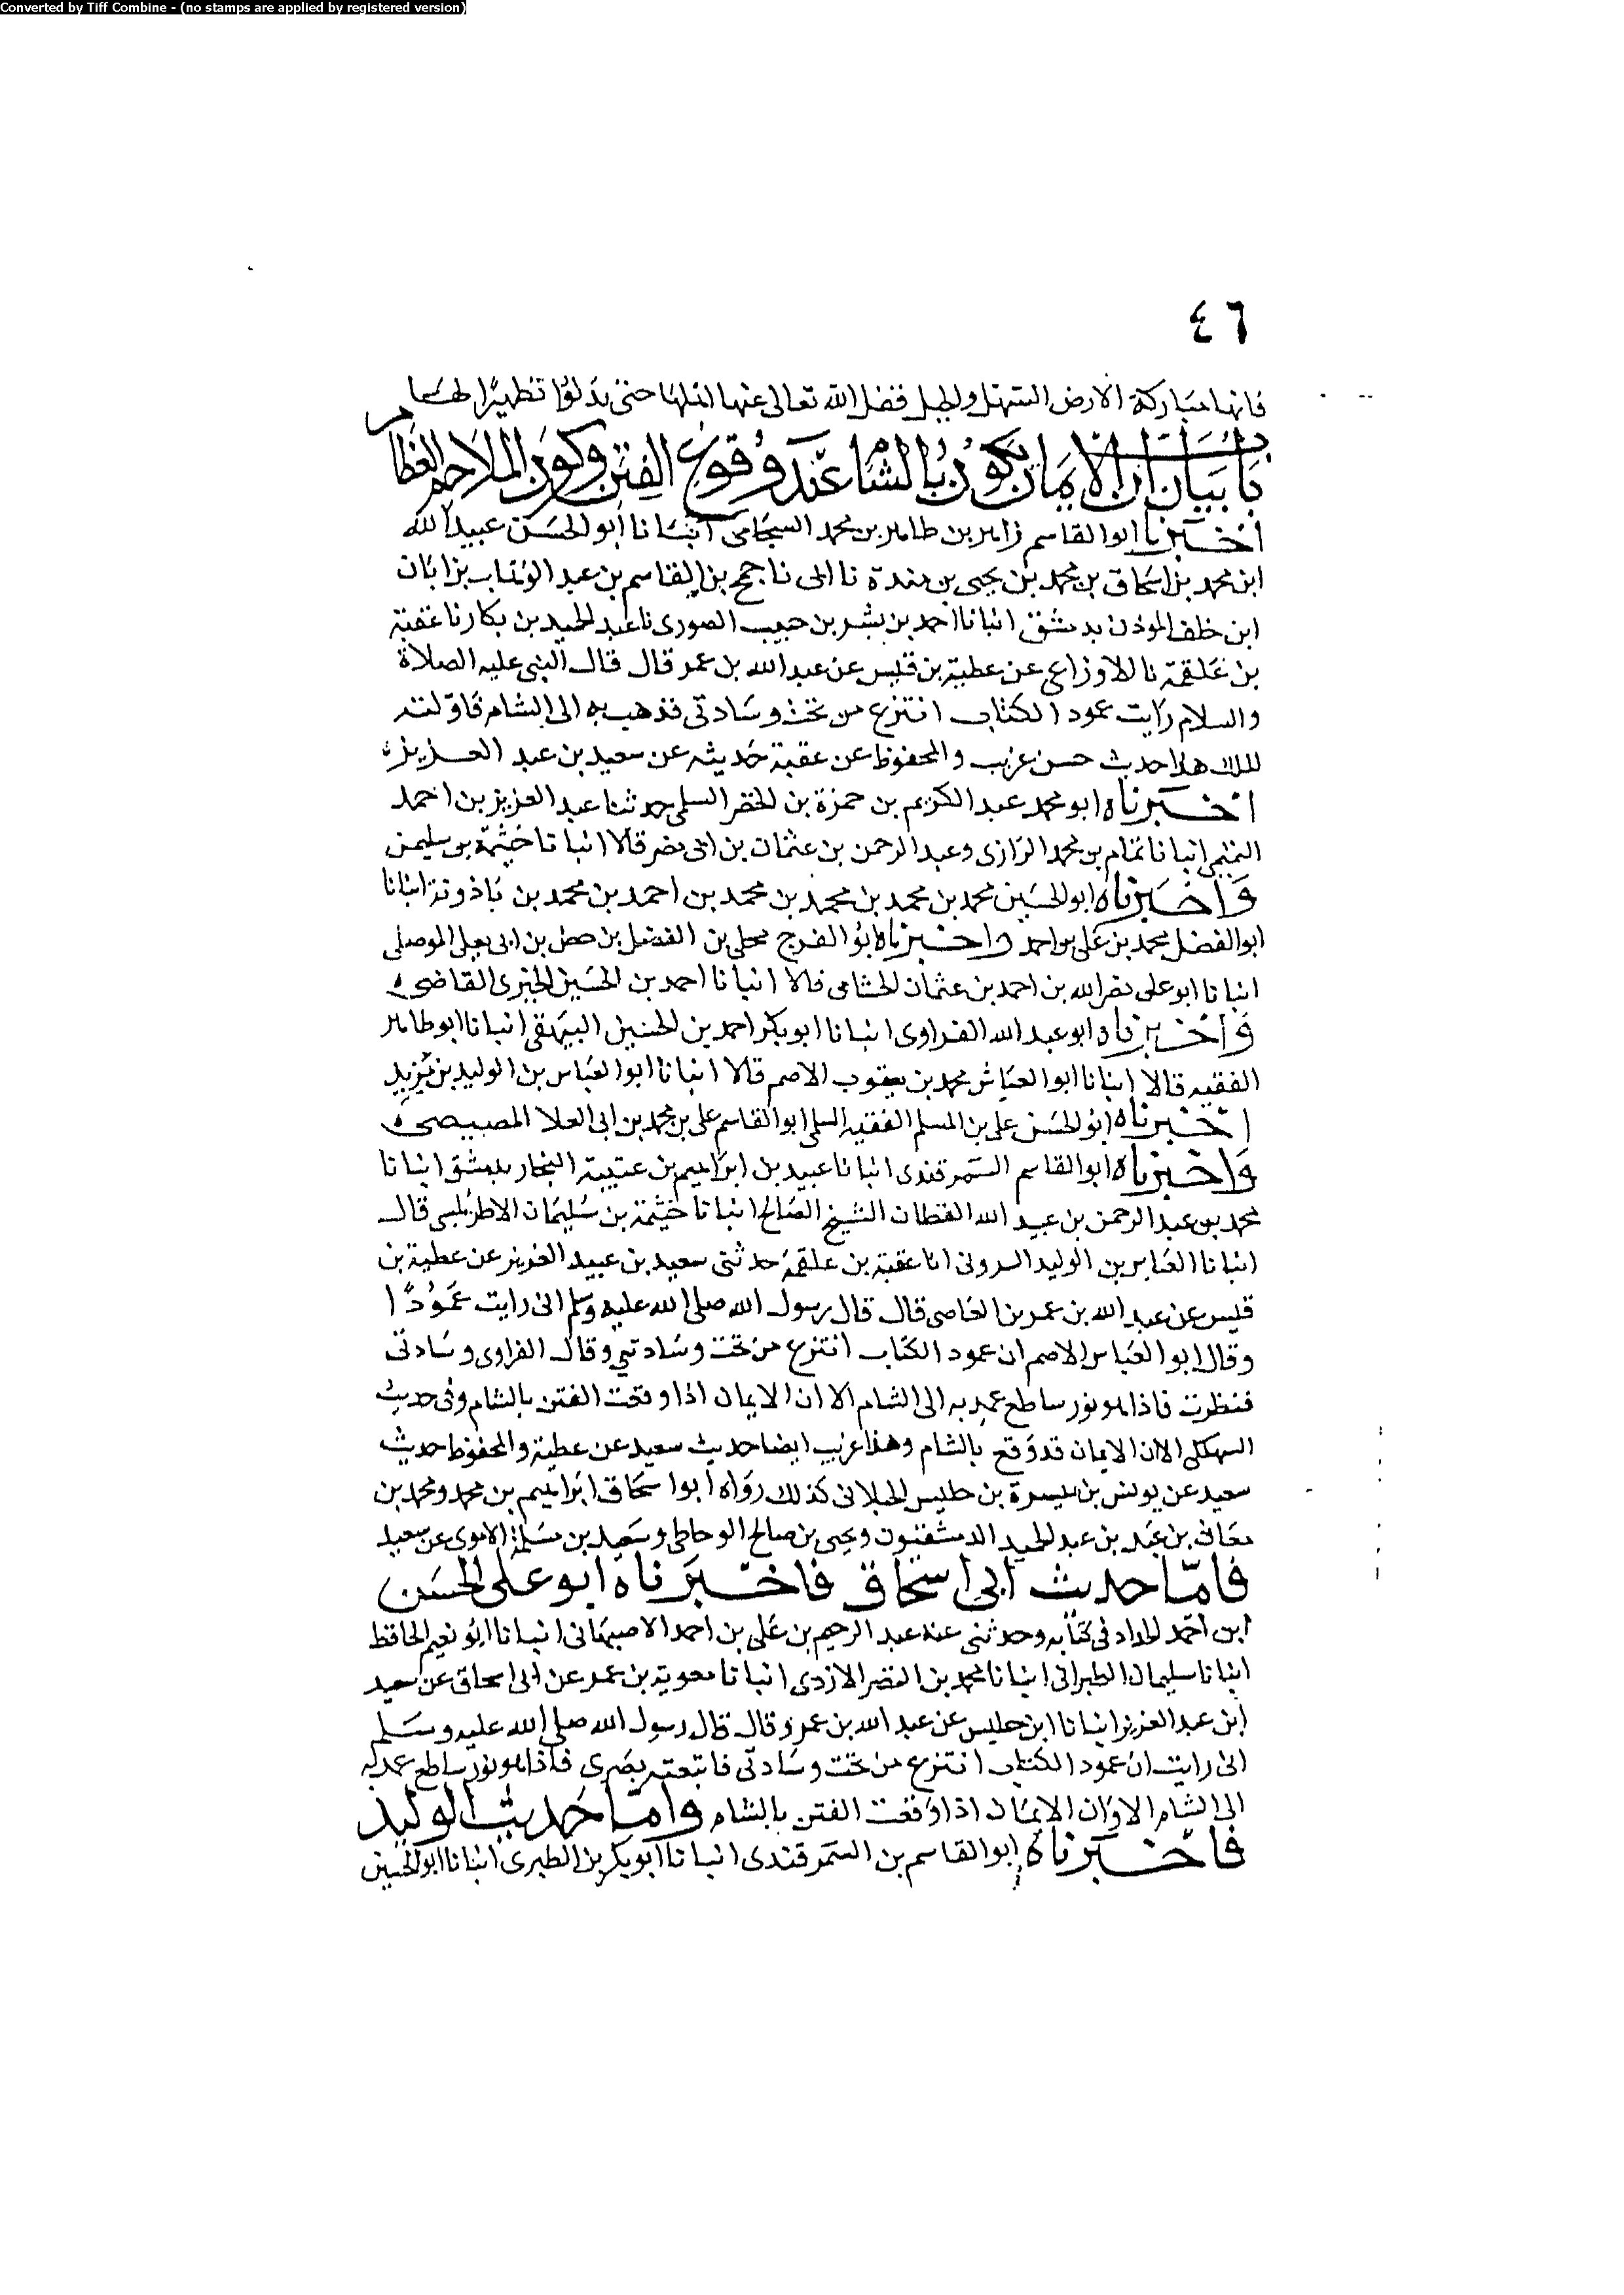 Converted by Tiff Combine - (no stamps are applied by registered version)
٤٦
فانها مباركة الارض السهل والجبل فضل الله تعالى عنها حتى تطهيرا لها
باب بيان ان الايمان يكون بالشام عند وقوع الفتن وكون الملاحم العظام
اخبرنا ابو القاسم زاهر بن طاهر بن محمد السجامى انبانا أبو الحسن عبيد الله
ابن محمد بن اسحاق بن محمد بن يحيى بن مندة نا ابى نا جمح بن القاسم بن عبد الوهاب بن ابان
ابن خلف الموذن بدمشق انبانا احمد بن بشر بن حبيب الصورى نا عبد الحميد بن بكار نا عقبة
بن علقمة نا الاوزاعى عن عطية بن قيس عن عبد الله بن عمر قال قال النبى عليه الصلاة
والسلام رايت عمود الكتاب انتزع من تحت وسادتى فذهب به الى الشام فاولته
للملك هذا حديث حسن غريب والمحفوظ عن عقبة حديثه عن سعيد بن عبد العزيز ه
اخبرناه ابو محمد عبد الكريم بن حمزة بن الخضر السلمى حدثنا عبد العزيز بن احمد
التميمى انبانا تمام بن محمد الرازى وعبد الرحمن بن عثمان بن ابى نصر قالا انبانا خيثمة بن سليمن
واخبرناه ابو الحسين محمد بن محمد بن محمد بن محمد بن احمد بن محمد بن باذونة انبانا
ابو الفضل محمد بن على بن احمد واخبرناه ابو الفرج محلى بن الفضل بن حصن بن ابى يعلى الموصلى
انبانا ابو على نصر الله بن احمد بن عثمان الخشنامى قالا انبانا احمد بن الحسين الحيرى القاضى ه
واخبرناه ابو عبد الله الفراوى انبانا ابو بكر احمد بن الحسين البيهقى انبانا ابو طاهر
الفقيه قالا انبانا ابو العباس محمد بن يعقوب الاصم قالا انبانا ابو العباس بن الوليد بن يزيد
اخبرناه ابو الحسن على بن المسلم الفقيه السلمى ابو القاسم على بن محمد بن ابى العلا المصيصى ه
واخبرناه ابو القاسم السمرقندى انبانا عبيد بن ابراهيم بن عتيبة النجار بدمشق انبانا
محمد بن عبد الرحمن بن عبيد الله القطان الشيخ الصالح انبانا خيثمة بن سليمان الاطرابلسى قال
انبانا العباس بن الوليد البيروتى انا عقبة بن علقمة حدثنى سعيد بن عبيد العزيز عن عطية بن
قيس عن عبد الله بن عمر بن العاصى قال قال رسول الله صلى الله عليه وسلم انى رايت عمودا
وقال ابو العباس الاصم ان عمود الكتاب انتزع من تحت وسادتى وقال الفراوى وسادتى
فنظرت فاذا هو نور ساطع عمد به الى الشام الا ان الايمان اذا وقعت الفتن بالشام وفى حديث
الا ان الايمان قد وقع بالشام وهذا غريب ايضا حديث سعيد عن عطية والمحفوظ حديث
سعيد عن يونس بن ميسرة بن حلبس الجبلانى كذلك رواه أبو اسحاق ابراهيم بن محمد ومحمد بن
معافى بن عبد بن عبد الحميد الدمشقيون ويحيى بن صالح الوحاظى وسعيد بن مسلمة الاموى عن سعيد
فاما حديث ابى اسحاق فاخبرناه ابو على الحسن
ابن احمد الحداد فى كتابه وحدثنى عنه عبد الرحيم بن على بن احمد الاصبهانى انبانا ابو نعيم الحافظ
انبانا سليمان الطبرانى انبانا محمد بن النضر الازدى انبانا معوية بن عمر عن ابى اسحاق عن سعيد
ابن عبد العزيز انبانا ابن حلبس عن عبد الله بن عمرو قال قال رسول الله صلى الله عليه وسلم
انى رايت ان عمود الكتاب انتزع من تحت وسادتى فاتبعته بصرى فاذا هو نور ساطع عمد به
الى الشام الا وان الايمان اذا وقعت الفتن بالشام واما حديث الوليد
فاخبرناه ابو القاسم بن السمرقندى انبانا ابو بكر بن الطبرى انبانا ابو الحسين